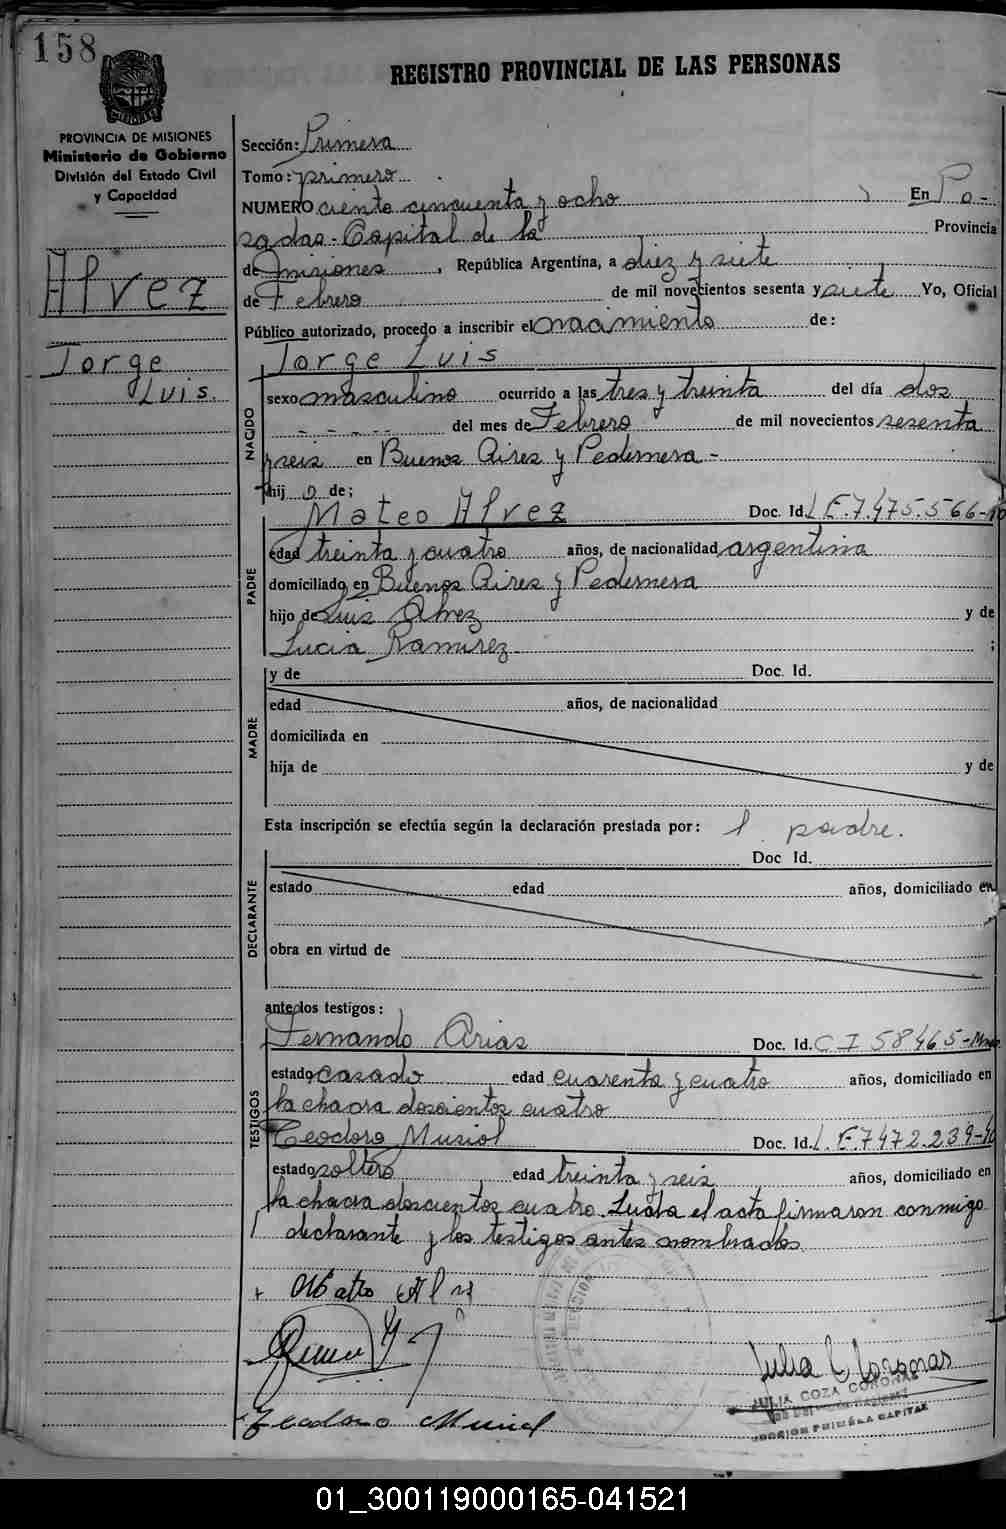 158
REGISTRO PROVINCIAL DE LAS PERSONAS
PROVINCIA DE MISIONES
Ministerio de Gobierno
División del Estado Civil
y Capacidad
Alvez
Jorge
Luis.
Sección: Primera
Tomo: primero
NUMERO ciento cincuenta y ocho En Po-
sadas - Capital de la Provincia
de Misiones, República Argentina, a diez y siete
de Febrero de mil novecientos sesenta y siete Yo, Oficial
Público autorizado, procedo a inscribir el nacimiento de:
NACIDO
Jorge Luis
sexo masculino ocurrido a las tres y treinta del día dos
del mes de Febrero de mil novecientos sesenta
y seis en Buenos Aires y Pedernera -
hij o de;
PADRE
Mateo Alvez Doc. Id. L.E. 7.475.566-
edad treinta y cuatro años, de nacionalidad argentina
domiciliado en Buenos Aires y Pedernera
hijo de Luis Alvez y de
Lucia Ramirez ;
MADRE
y de Doc. Id.
edad años, de nacionalidad
domiciliada en
hija de y de
Esta inscripción se efectúa según la declaración prestada por: l padre.
DECLARANTE
Doc Id.
estado edad años, domiciliado en
obra en virtud de
ante los testigos:
TESTIGOS
Fernando Arias Doc. Id. C I 58465-Mnes
estado casado edad cuarenta y cuatro años, domiciliado en
la chacra doscientos cuatro
Teodoro Musiol Doc. Id. L.E. 7472.239-
estado soltero edad treinta y seis años, domiciliado en
la chacra doscientos cuatro. Leída el acta firmaron conmigo
l declarante y los testigos antes nombrados.
Mateo Al
Julia C Coronas
JULIA COZA CORONAS
SECCION PRIMERA CAPITAL
Teodoro Musiol
01_300119000165-041521